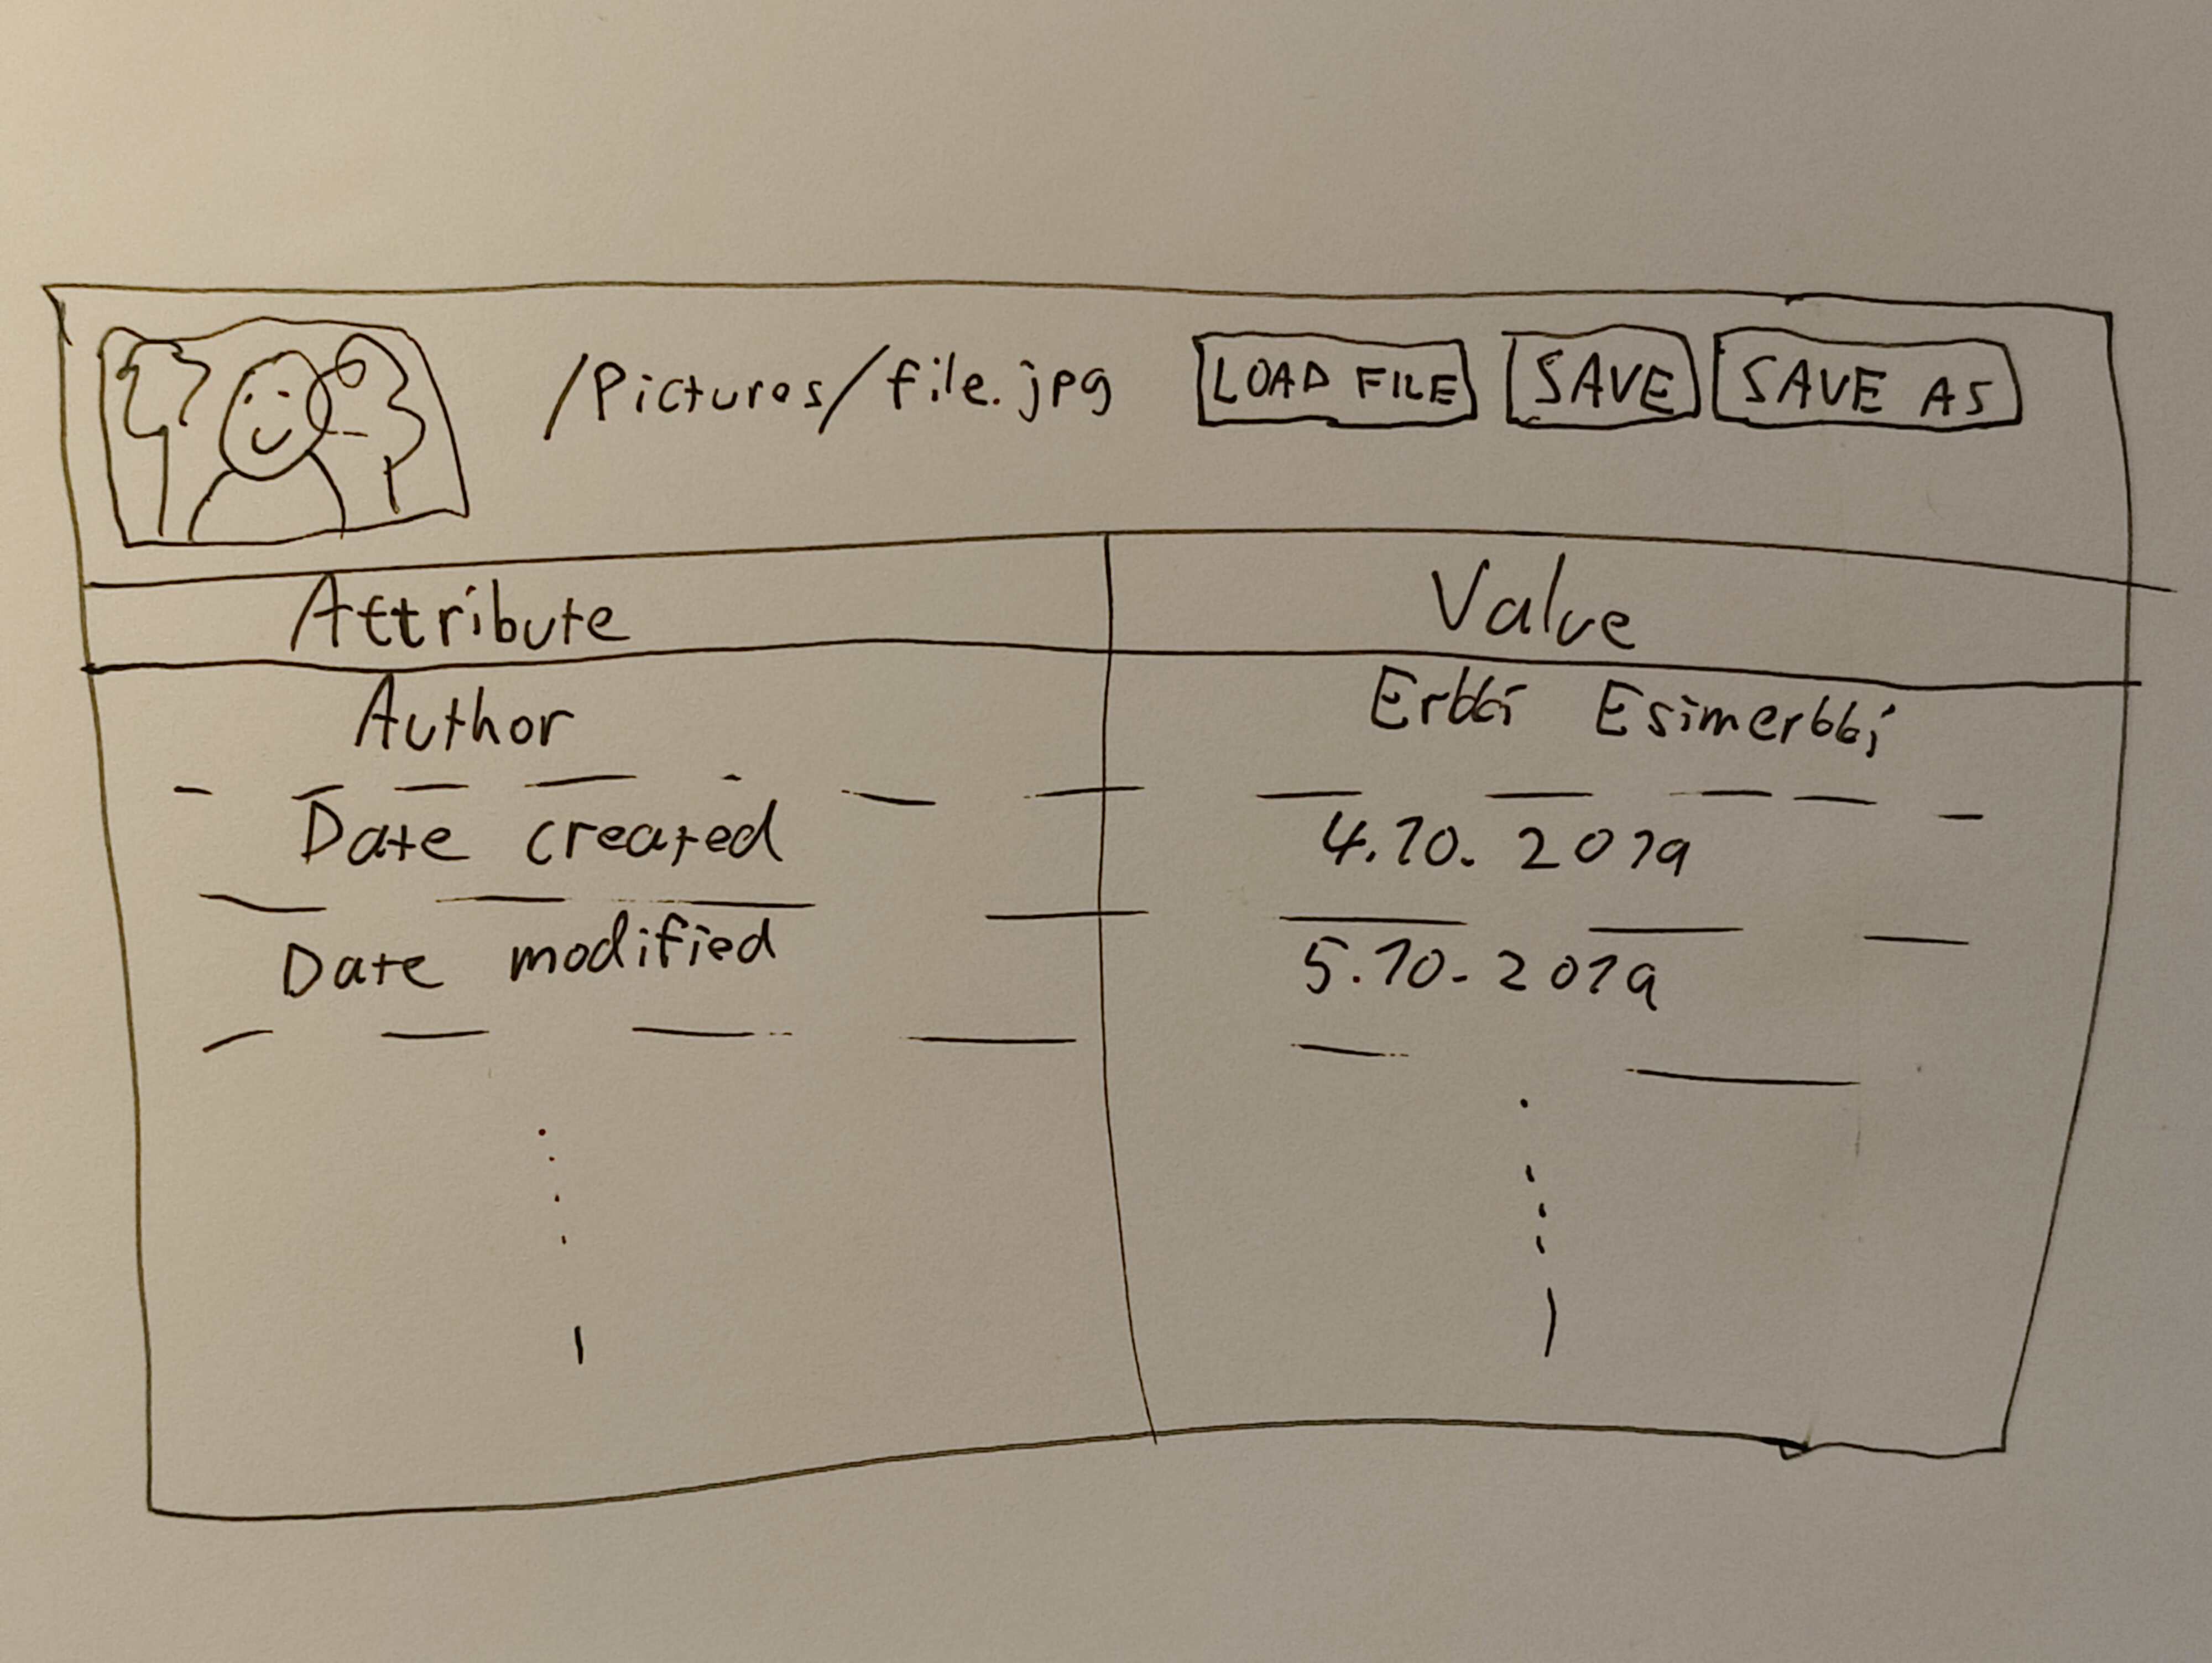 /Pictures/file.jpg LOAD FILE SAVE SAVE AS
Attribute Value
Author Erkki Esimerkki
Date created 4.10.2019
Date modified 5.10.2019